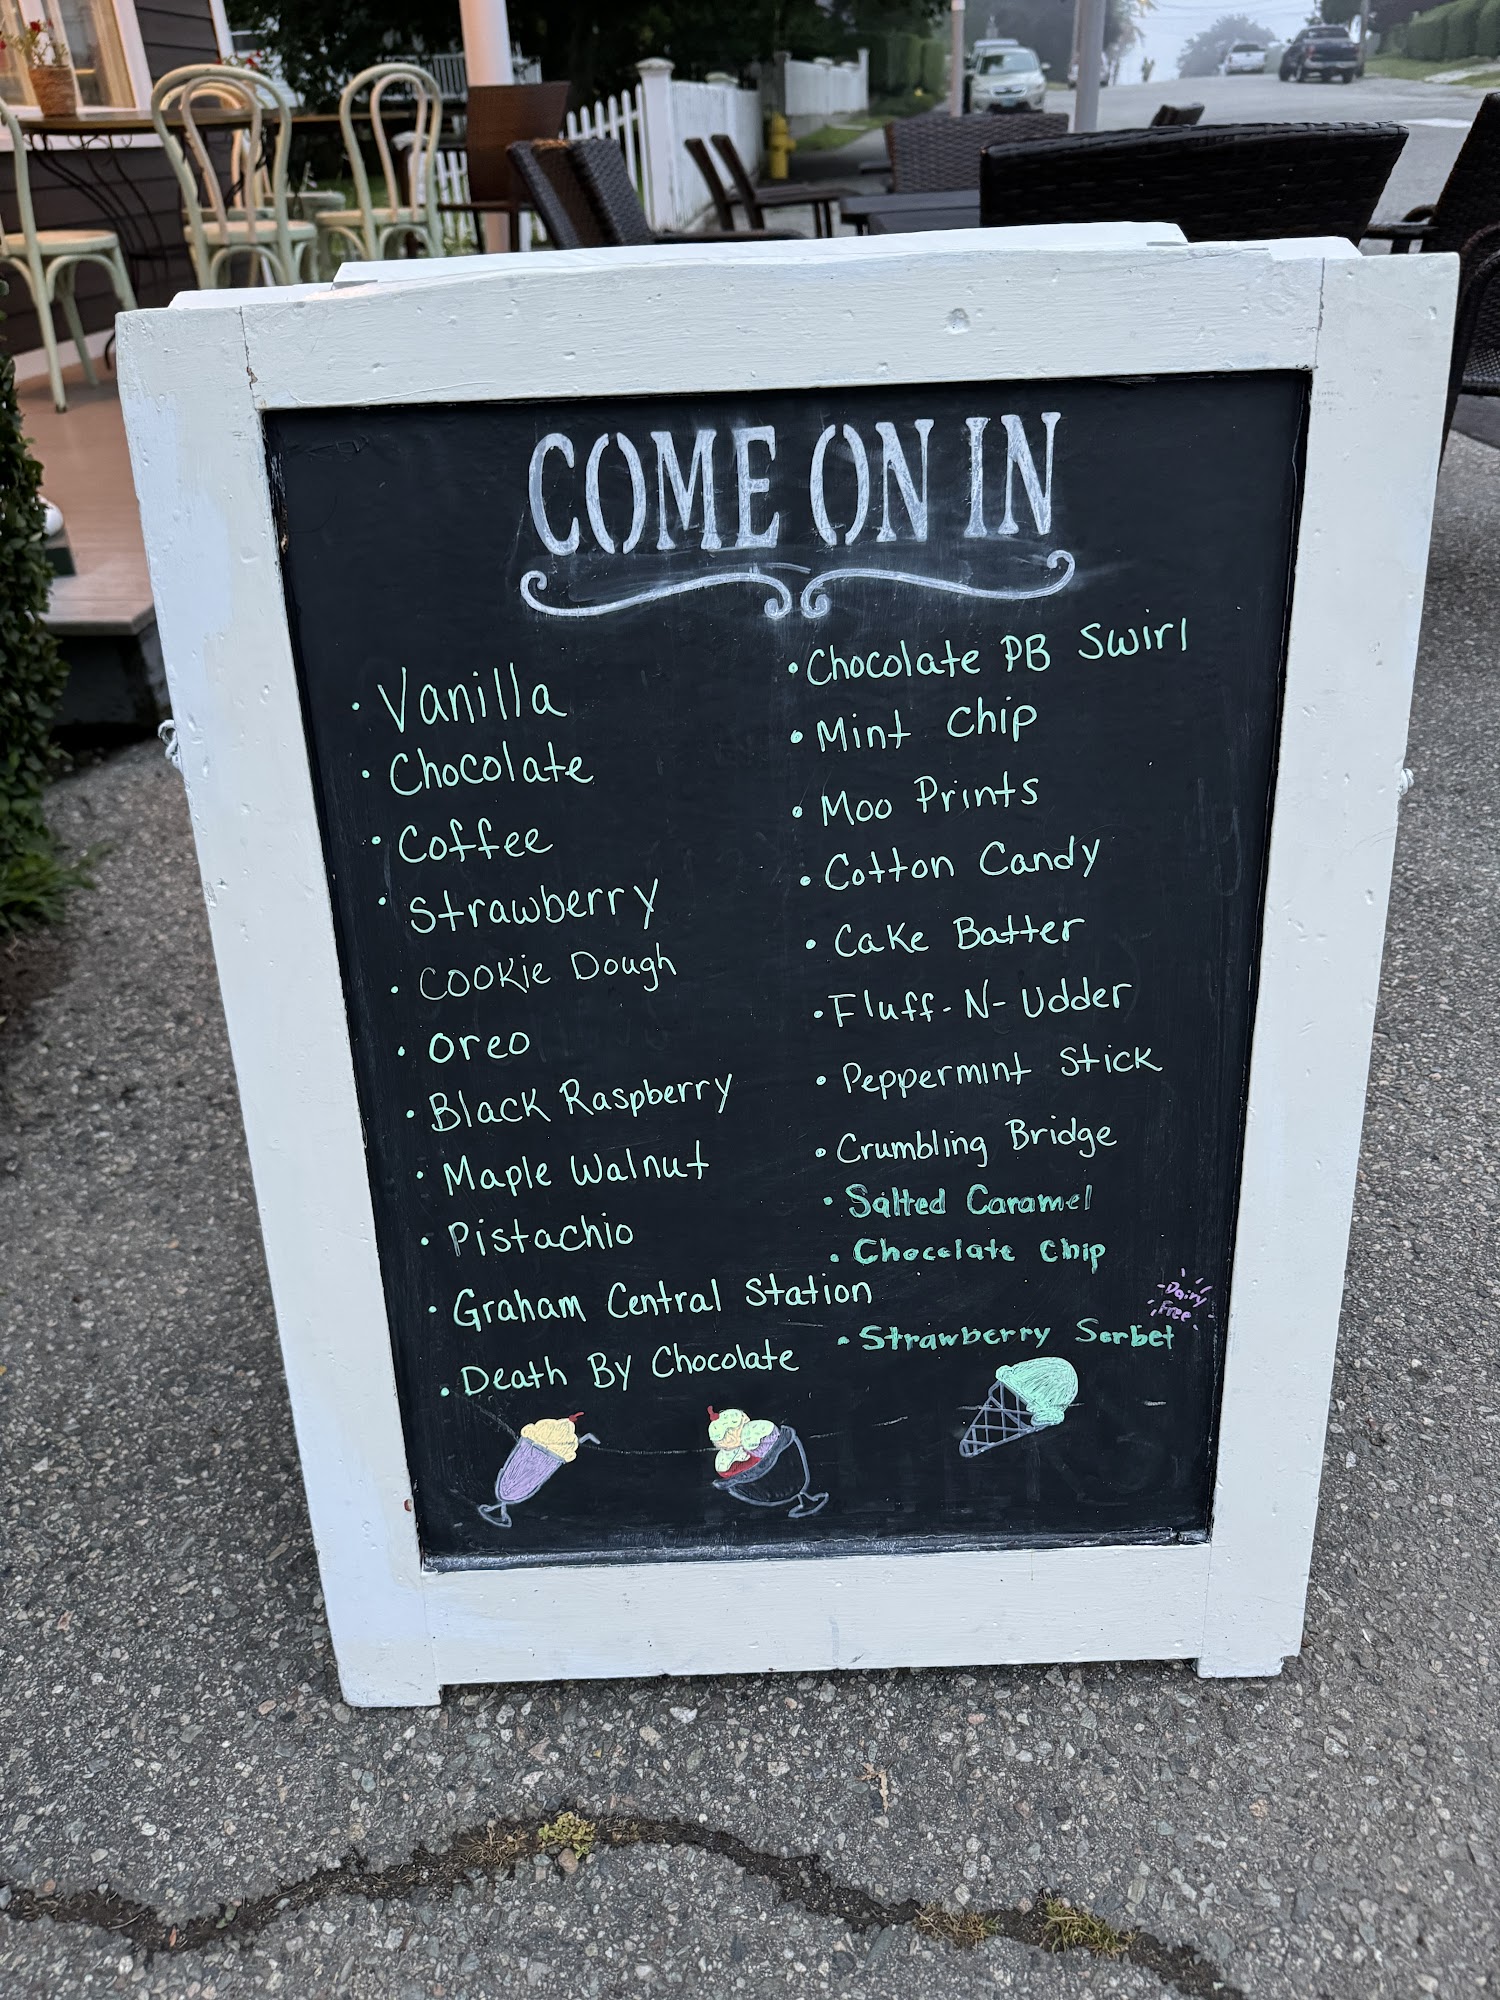 COME ON IN
• Vanilla
• Chocolate
• Coffee
• Strawberry
• Cookie Dough
• Oreo
• Black Raspberry
• Maple Walnut
• Pistachio
• Graham Central Station
• Death By Chocolate
• Chocolate PB Swirl
• Mint Chip
• Moo Prints
• Cotton Candy
• Cake Batter
• Fluff-N-Udder
• Peppermint Stick
• Crumbling Bridge
• Salted Caramel
• Chocolate Chip
Dairy
Free
• Strawberry Sorbet